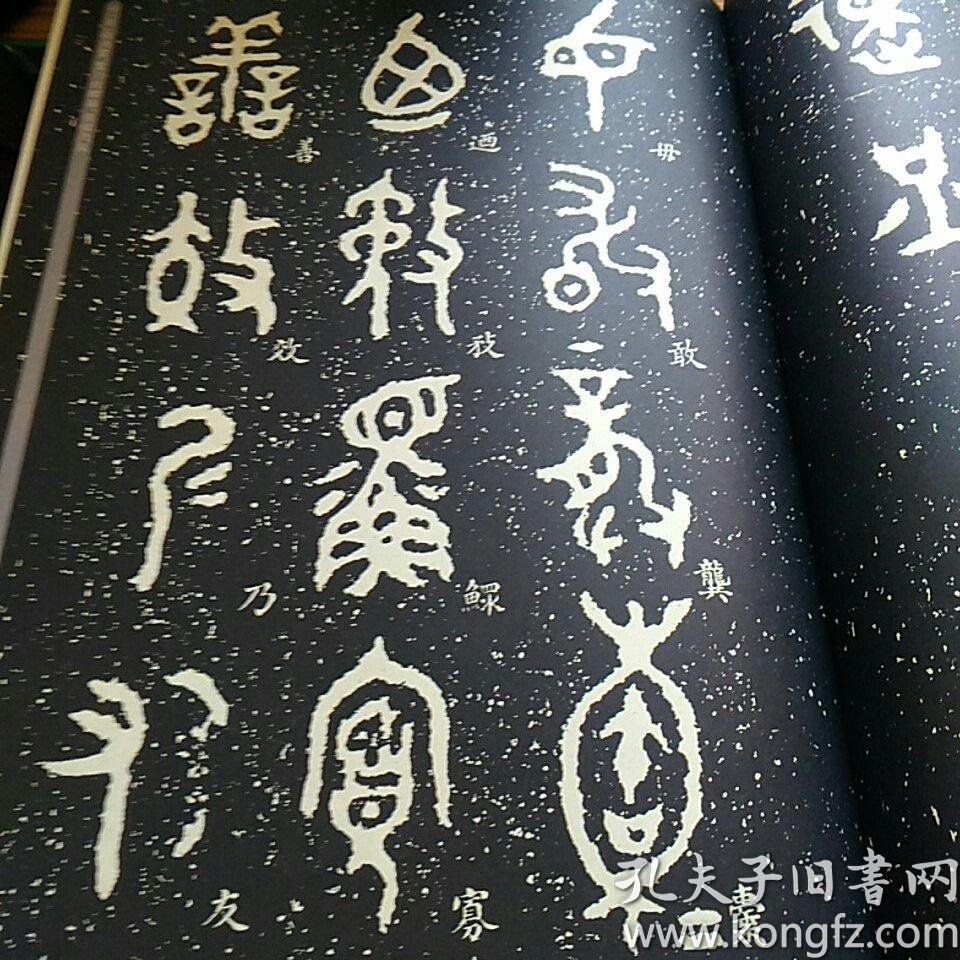 毋敢龔
迺敄鰥寡
善效乃友
孔夫子旧书网
www.kongfz.com